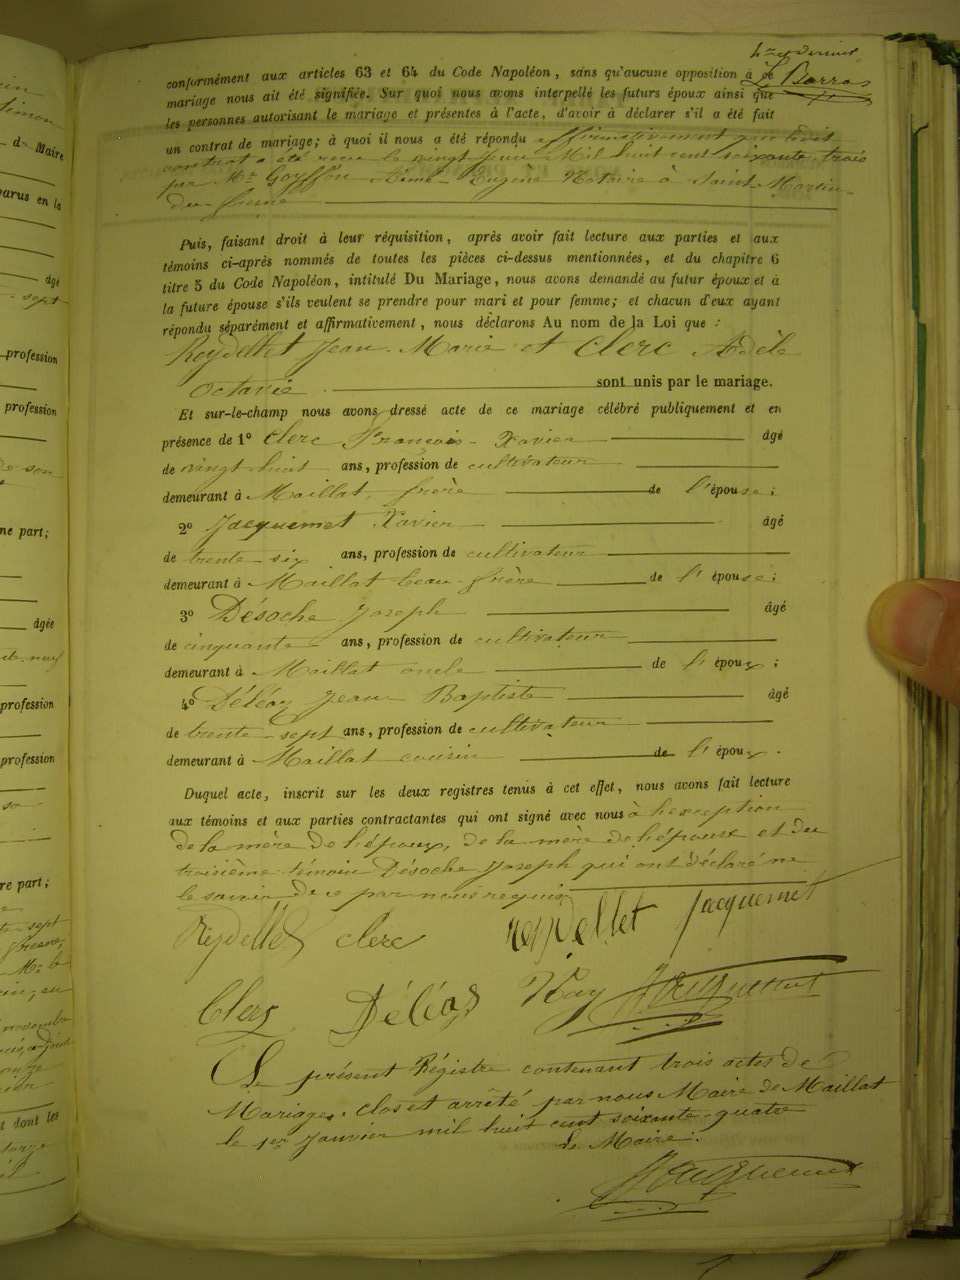 4me et dernier
conformément aux articles 63 et 64 du Code Napoléon, sans qu'aucune opposition à ce
mariage nous ait été signifiée. Sur quoi nous avons interpellé les futurs époux ainsi que
les personnes autorisant le mariage et présentes à l'acte, d'avoir à déclarer s'il a été fait
un contrat de mariage; à quoi il nous a été répondu affirmativement que ledit
contrat a été reçu le vingt juin Mil huit cent soixante trois
par Me Goyffon Aimé Eugène Notaire à Saint Martin
du fresne
Puis, faisant droit à leur réquisition, après avoir fait lecture aux parties et aux
témoins ci-après nommés de toutes les pièces ci-dessus mentionnées, et du chapitre 6
titre 5 du Code Napoléon, intitulé Du Mariage, nous avons demandé au futur époux et à
la future épouse s'ils veulent se prendre pour mari et pour femme; et chacun d'eux ayant
répondu séparément et affirmativement, nous déclarons Au nom de la Loi que :
Reydellet Jean Marie et Clerc Adèle
Octavie sont unis par le mariage.
Et sur-le-champ nous avons dressé acte de ce mariage célébré publiquement et en
présence de 1o Clerc François Xavier âgé
de vingt huit ans, profession de cultivateur
demeurant à Maillat, frère de l'épouse;
2o Jacquemet Xavier âgé
de trente six ans, profession de cultivateur
demeurant à Maillat beau-frère de l'épouse;
3o Désoche Joseph âgé
de cinquante ans, profession de cultivateur
demeurant à Maillat oncle de l'époux;
4o Déléaz Jean Baptiste âgé
de trente-sept ans, profession de cultivateur
demeurant à Maillat cousin de l'époux.
Duquel acte, inscrit sur les deux registres tenus à cet effet, nous avons fait lecture
aux témoins et aux parties contractantes qui ont signé avec nous à l'exception
de la mère de l'époux, de la mère de l'épouse et du
troisième témoin Désoche Joseph qui ont déclaré ne
le savoir de ce par nous requis
Reydellet clerc reydellet Jacquemet
Clerc Déléas Ray
Le présent Régistre contenant trois actes de
Mariages, clos et arrêté par nous Maire de Maillat
le 1er Janvier mil huit cent soixante-quatre
Le Maire.